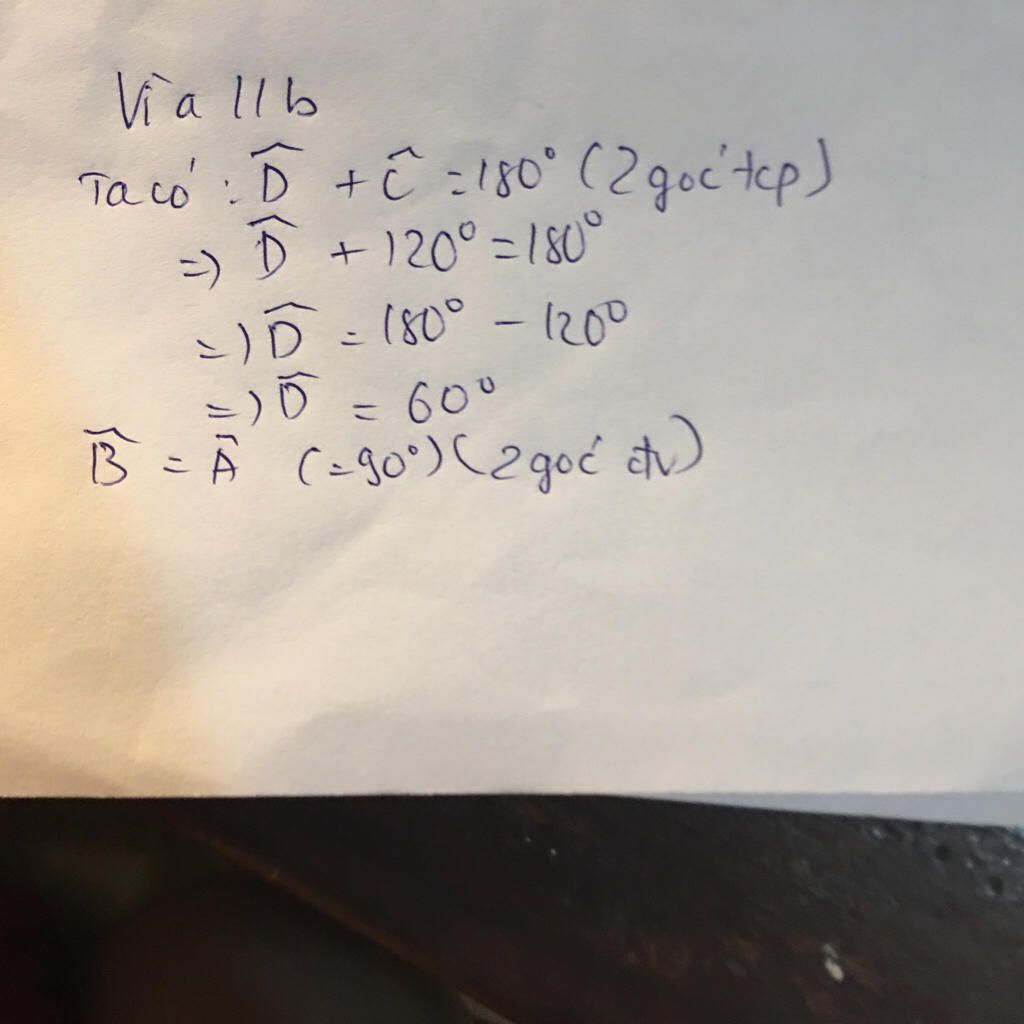 Vì a // b
Ta có : D̂ + Ĉ = 180° (2 góc tcp)
=> D̂ + 120° = 180°
=> D̂ = 180° - 120°
=> D̂ = 60°
B̂ = Â (= 90°) (2 góc đv)